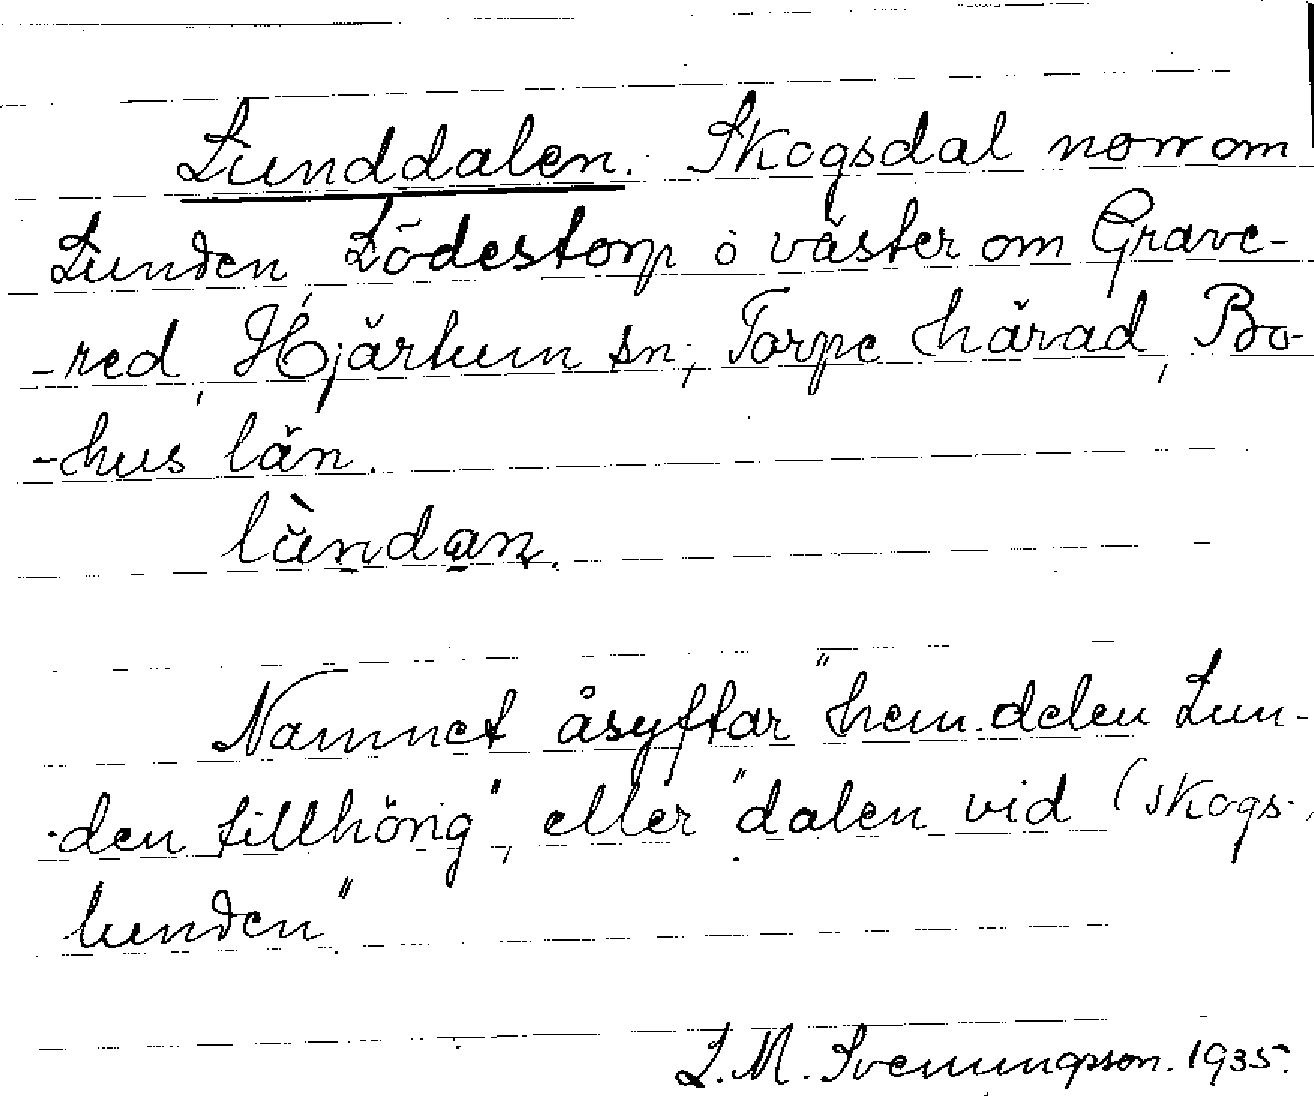 Lunddalen. Skogsdal norr om
Lunden Lödestorp o väster om Grave-
-red, Hjärtum sn; Torpe härad, Bo-
-hus län.
lùndan.
Namnet åsyftar "hem.delen Lun-
-den tillhörig", eller "dalen vid (skogs-)
lunden".
L. M. Svenungsson. 1935.